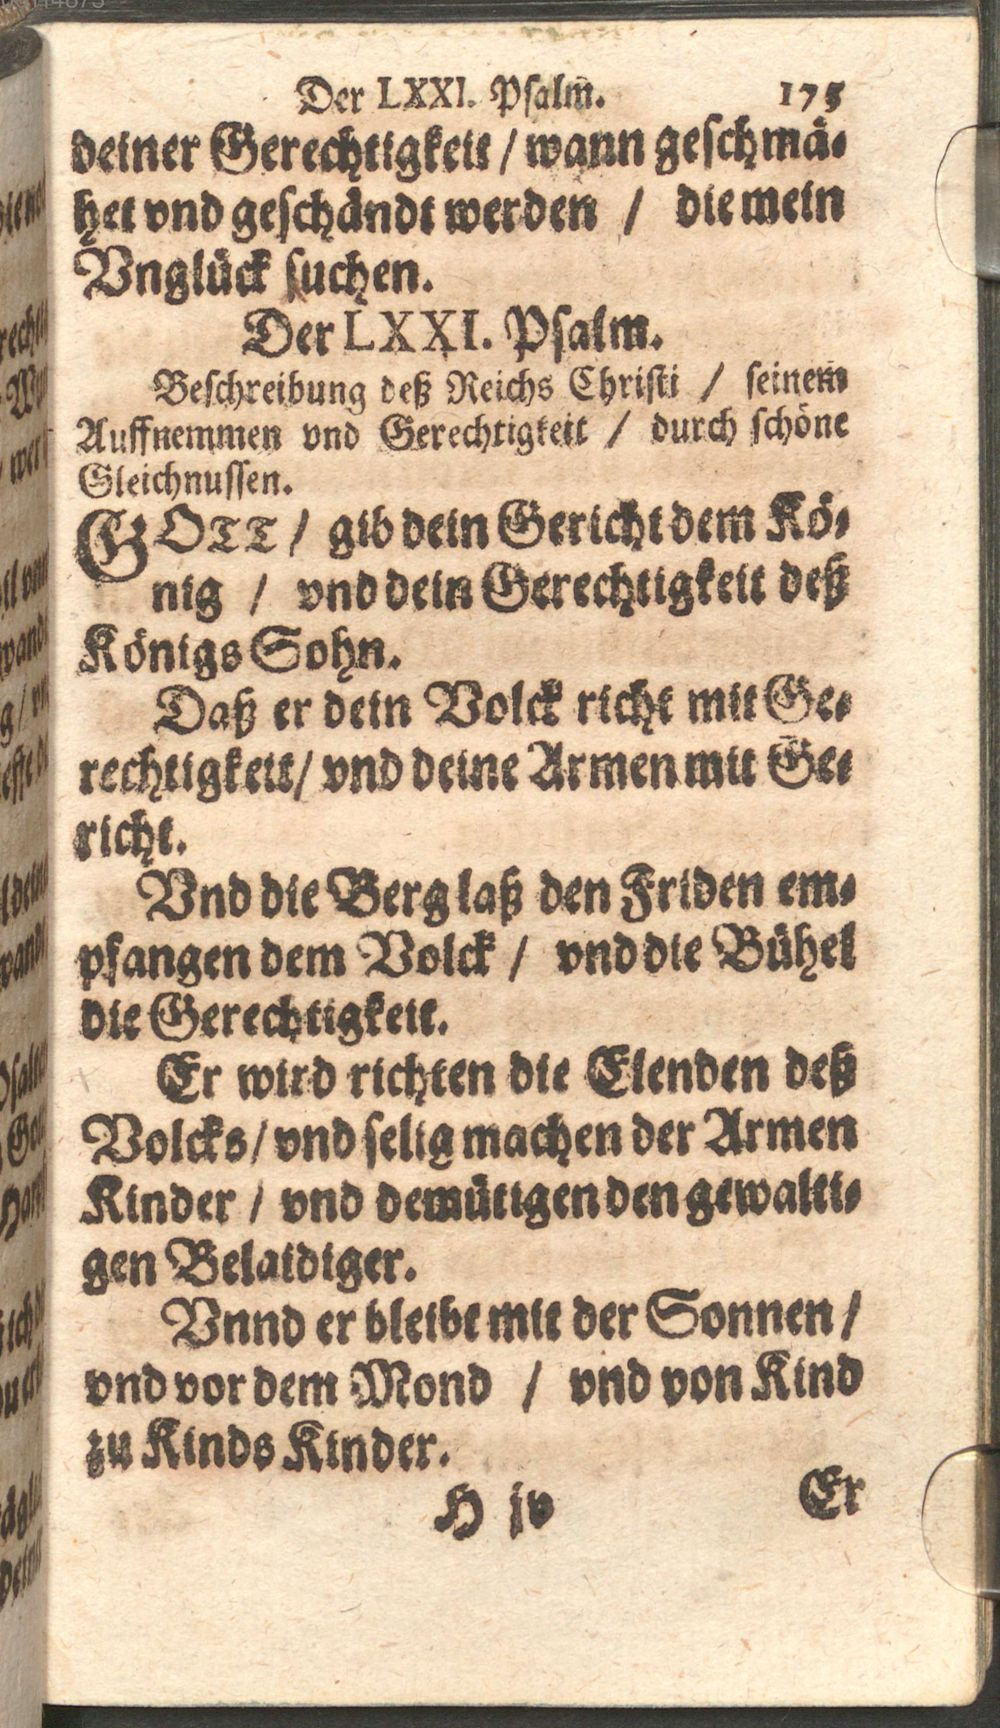 Der LXXI. Psalm. 175
deiner Gerechtigkeit / wann geschmä-
het vnd geschändt werden / die mein
Vnglück suchen.
Der LXXI. Psalm.
Beschreibung deß Reichs Christi / seinem
Auffnemmen vnd Gerechtigkeit / durch schöne
Gleichnussen.
GOTT / gib dein Gericht dem Kö-
nig / vnd dein Gerechtigkeit deß
Königs Sohn.
Daß er dein Volck richt mit Ge-
rechtigkeit / vnd deine Armen mit Ge-
richt.
Vnd die Berg laß den Friden em-
pfangen dem Volck / vnd die Bühel
die Gerechtigkeit.
Er wird richten die Elenden deß
Volcks / vnd selig machen der Armen
Kinder / vnd demütigen den gewalti-
gen Belaidiger.
Vnnd er bleibt mit der Sonnen /
vnd vor dem Mond / vnd von Kind
zu Kinds Kinder.
H iv Er